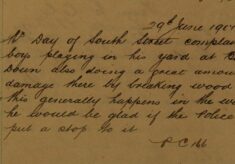 29th June 190
Mr Day of South Street complai
boys playing in his yard at
Down also doing a great amou
damage there by breaking wood
this generally happens in the
he would be glad if the Police
put a stop to it
P C 66